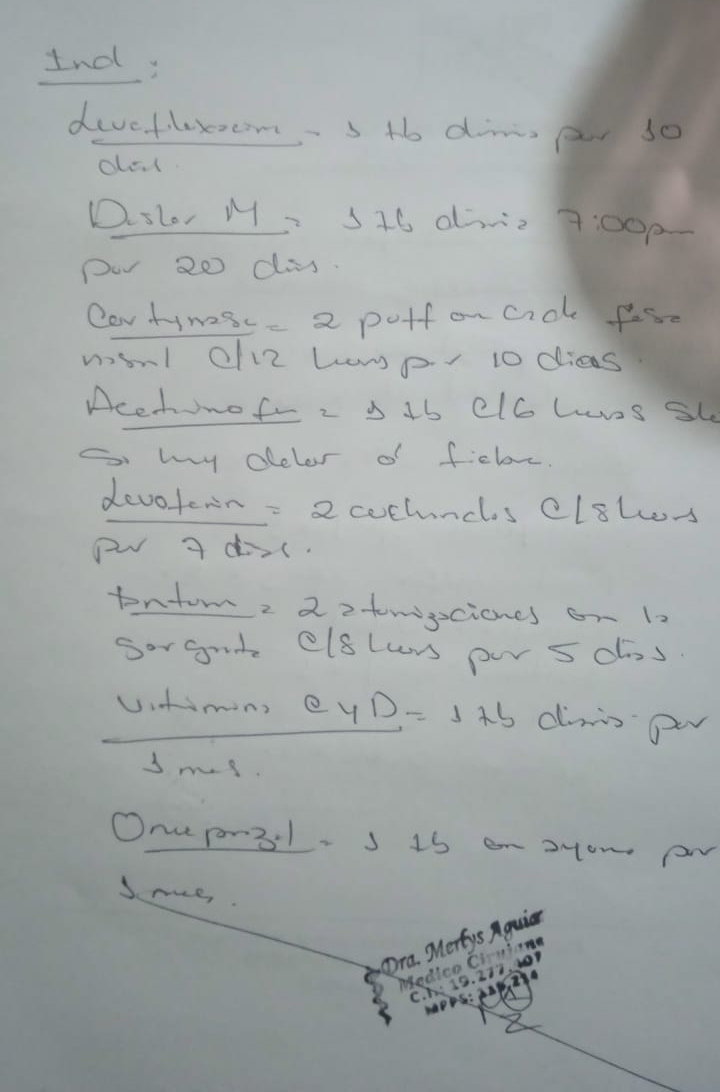 Ind :
Levofloxacina - 1 tb diaria por 10
dias.
Dislor M = 1 tb diaria 7:00pm
por 20 dias.
= 2 puff en cada fosa
nasal C/12 horas por 10 dias.
Acetaminofen = 1 tb C/6 horas
Si hay dolor ó fiebre.
= 2 cucharadas C/8 horas
por 7 dias.
Tantum = 2 atomizaciones en la
garganta C/8 horas por 5 dias.
Vitamina C y D = 1 tb diaria por
1 mes.
Omeprazol = 1 tb en ayuna por
1 mes.
Dra. Merlys Aguiar
Medico Cirujano
C.I.: 19.277.
MPPS: